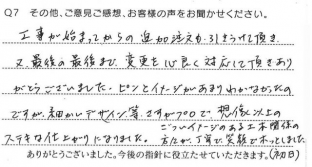 Q7 その他、ご意見ご感想、お客様の声をお聞かせください。
工事が始まってからの追加注文から引きうけて頂き
又最後の最後まで、変更を心良く対応して頂きあり
がとうございました。ピンとイメージがあまりわかなかったの
ですが、細かいデザイン等さすがプロで、想像以上の
ステキな仕上がりになりました。
ごついイメージのある工事関係の
方たちが、丁寧で笑顔でホッとしました
ありがとうございました。今後の指針に役立たせていただきます。(初回)